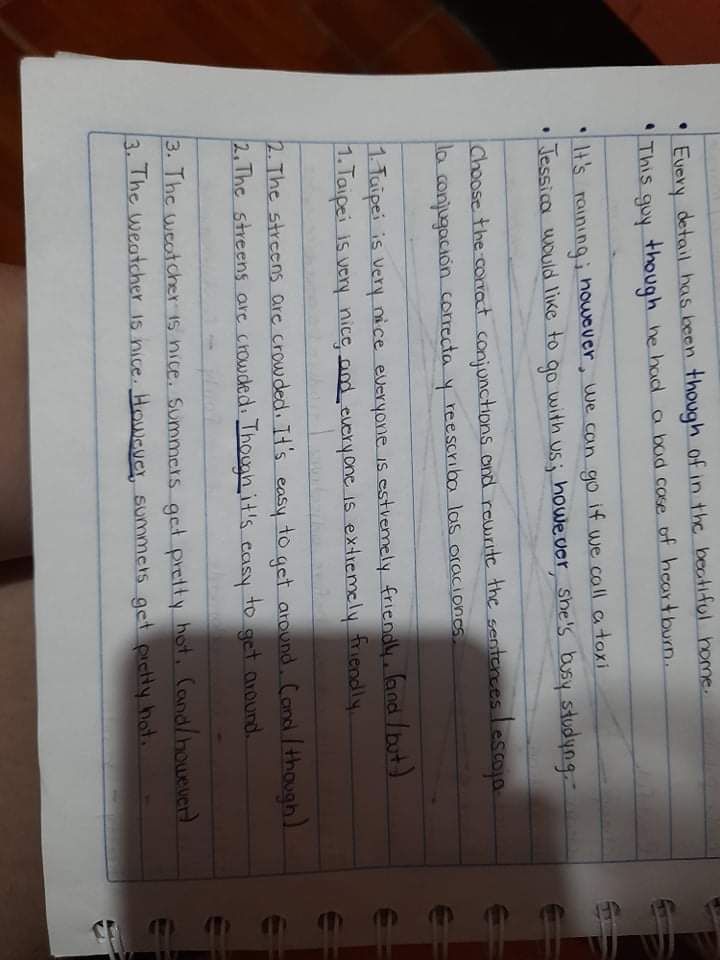 • Every detail has been though of in the beatiful home.
• This guy though he had a bad case of heartburn.
• It's raining; however, we can go if we call a taxi
• Jessica would like to go with us; however, she's busy studyng.-
Choose the corract conjunctions and rewrite the sentences / escoja
la conjugación correcta y reescriba las oraciones.
1. Taipei is very nice everyone is estremely friendly. (and / but)
1. Taipei is very nice and everyone is extremely friendly
2. The streens are crowded. It's easy to get around. (and / though)
2. The streens are crowded. Though it's easy to get around.
3. The weatcher is nice. summers get pretty hot. (and / however)
3. The weatcher is nice. However, summers get pretty hot.